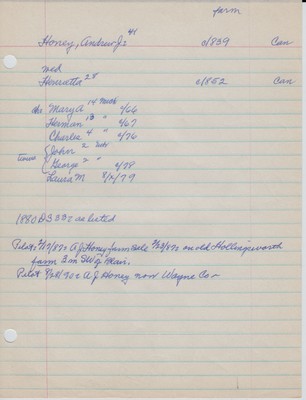 farm
Honey, Andrew J. 41 c/839 Can
wed
Henrietta 28 c/852 Can
chn Mary A 14 Mich c/66
Herman 13 " c/67
Charles 4 " c/76
twins { John 2 Neb
George 2 " c/78
Laura M 8/x/79
1880 DS 332 as listed
Pilot: 2/17/87: A J Honey farm sale 2/23/87: on old Hollingsworth
farm 3 m SW of Blair.
Pilot 90: A J Honey now Wayne Co -